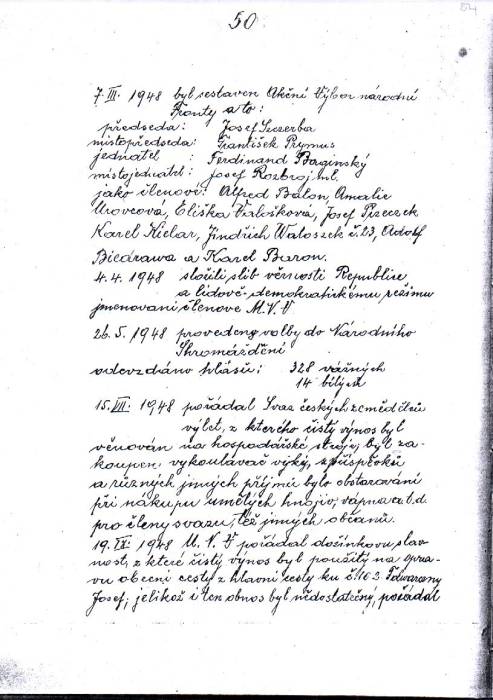 50
7. III. 1948 byl sestaven Akční Výbor národní
Fronty a to:
předseda: Josef Szczerba
místopředseda: František Prymus
jednatel: Ferdinand Baginský
místojednatel: Josef Rozbroj ml.
jako členové: Alfred Balon, Amalie
Urovcová, Eliška Josef Pszeczek
Karel Kielar, Jindřich Waloszek č. 23, Adolf
Biedrawa a Karel Buron.
4. 4. 1948 složili slib věrnosti Republice
a lidově-demokratickému režimu
jmenovaní členové M. V. V
26. 5. 1948 provedeny volby do Národního
Shromáždění
odevzdáno hlasů: 328 vážných
14 bílých
15. VIII. 1948 pořádal Svaz českých zemědělců
výlet, z kterého čistý výnos byl
věnován na hospodářské stroje; byl za-
koupen vykoulavač výky, z příspěvků
a různých jiných příjmů bylo obstarávání
při nákupu umělých hnojiv, vápna a. t. d.
pro členy svazu, též jiných občanů.
19. IX. 1948 M. V. V pořádal dožínkovu slav-
nost, z které čistý výnos byl použitý na opra-
vu obecní cesty z hlavní cesty ku č. 162
Josef; jelikož i ten obnos byl nedostatečný, pořádal